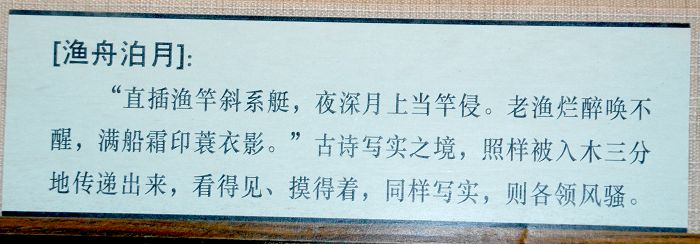 [渔舟泊月]：
“直插渔竿斜系艇，夜深月上当竿侵。老渔烂醉唤不
醒，满船霜印蓑衣影。”古诗写实之境，照样被入木三分
地传递出来，看得见、摸得着，同样写实，则各领风骚。